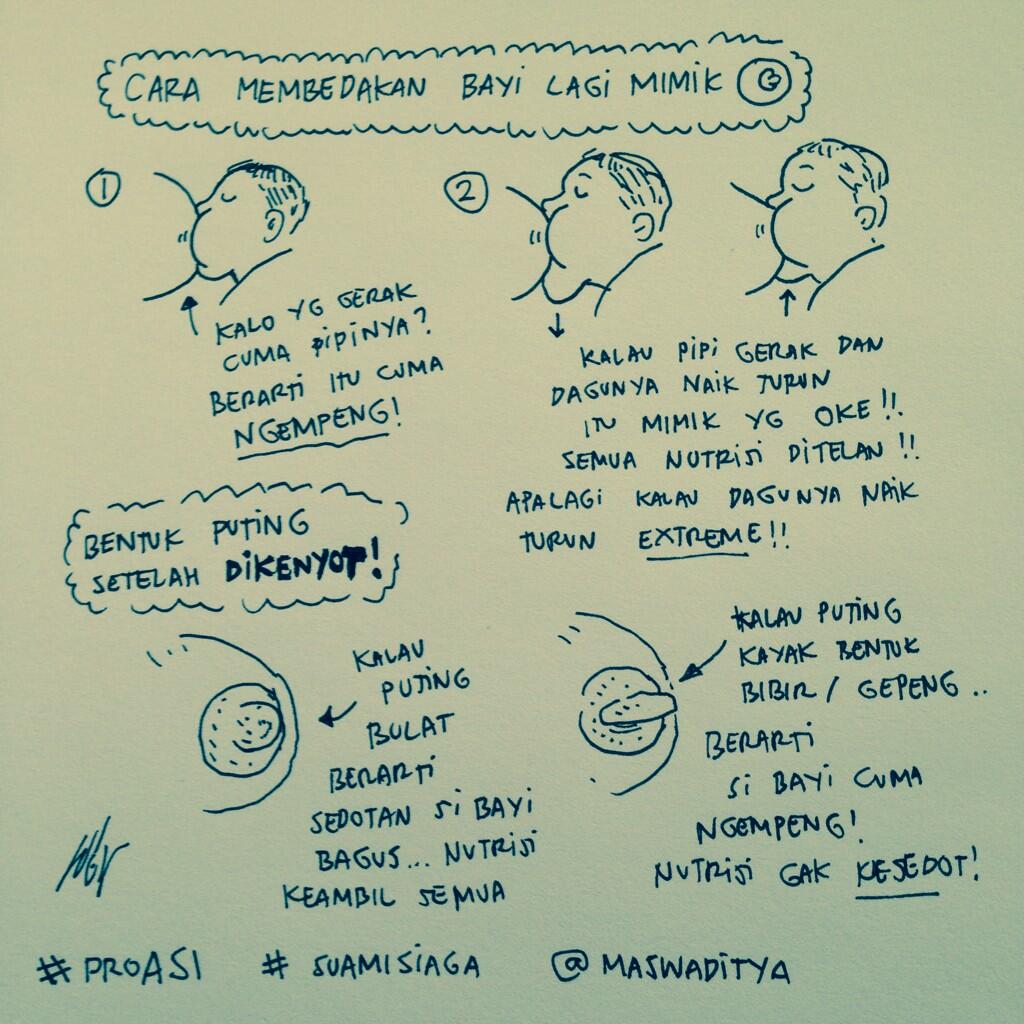 CARA MEMBEDAKAN BAYI LAGI MIMIK
1
KALO YG GERAK
CUMA PIPINYA?
BERARTI ITU CUMA
NGEMPENG!
2
KALAU PIPI GERAK DAN
DAGUNYA NAIK TURUN
ITU MIMIK YG OKE!!
SEMUA NUTRISI DITELAN!!
APALAGI KALAU DAGUNYA NAIK
TURUN EXTREME!!
BENTUK PUTING
SETELAH DIKENYOT!
KALAU
PUTING
BULAT
BERARTI
SEDOTAN SI BAYI
BAGUS... NUTRISI
KEAMBIL SEMUA
KALAU PUTING
KAYAK BENTUK
BIBIR / GEPENG..
BERARTI
SI BAYI CUMA
NGEMPENG!
NUTRISI GAK KESEDOT!
#PROASI # SUAMISIAGA @MASWADITYA